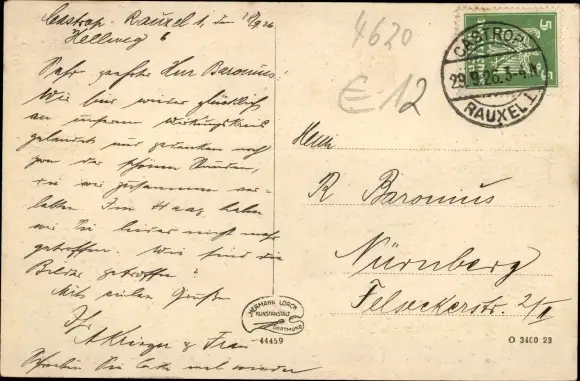 Castrop-Rauxel 1, den 28/9 26
Hellweg 6
Sehr geehrter Herr Baronius!
Wir sind wieder glücklich
an unserm Wirkungskreis
gelandet und gedenken noch
gern der schönen Stunden,
die wir zusammen ver-
lebten. Im Haag haben
wir Sie leider nicht mehr
getroffen. Wie sind die
Bilder getroffen?
Mit vielen Grüßen
Ihr
A Krieger & Frau
Schreiben Sie bitte mal wieder
4620
€ 12
5 5
CASTROP-
29.9.26. 3-4 N
RAUXEL 1
Herrn
R Baronius
Nürnberg
Felseckerstr. 2/II
HERMANN LORCH
KUNSTANSTALT
DORTMUND
44459
O 3400 23